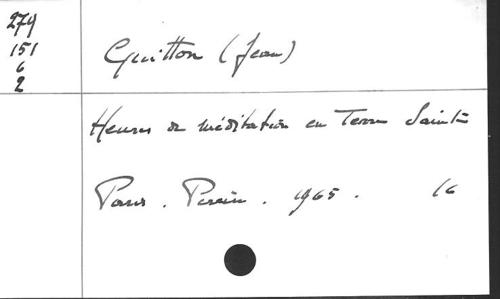 274
151
6
2
Guitton (Jean)
Heures de méditation en Terre Sainte
Paris. Perrin. 1965. 16